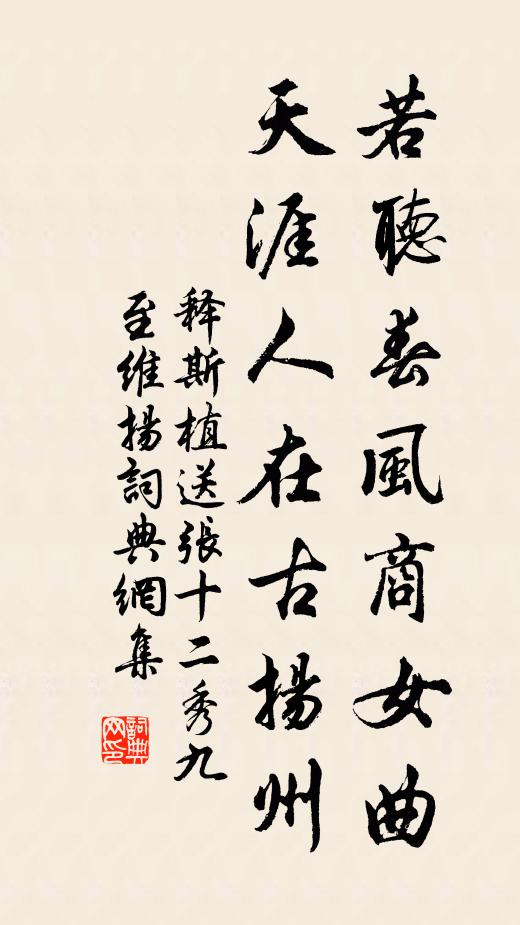 若聽春風商女曲
天涯人在古揚州
释斯植送張十二秀九
至維揚詞典網集
詞典網印